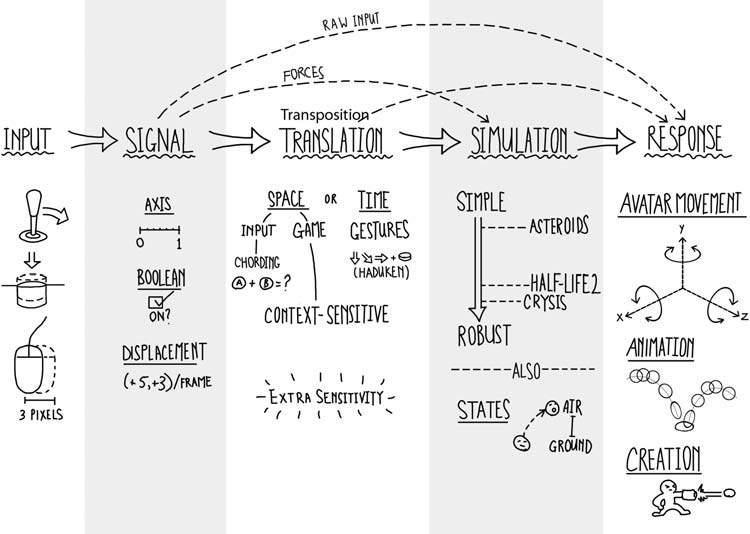 RAW INPUT
FORCES
Transposition
INPUT
SIGNAL
TRANSLATION
SIMULATION
RESPONSE
3 PIXELS
AXIS
0 1
BOOLEAN
ON?
DISPLACEMENT
(+5,+3)/FRAME
SPACE OR TIME
INPUT GAME
GESTURES
CHORDING
A + B = ?
(HADUKEN)
CONTEXT-SENSITIVE
EXTRA SENSITIVITY
SIMPLE
ASTEROIDS
HALF-LIFE 2
CRYSIS
ROBUST
ALSO
STATES
AIR
GROUND
AVATAR MOVEMENT
Y
X
Z
ANIMATION
CREATION